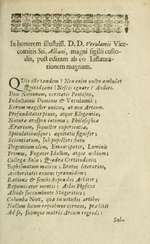 In honorem illustriss. D. D. Verulamii Vice-
comitis St. Albani, magni sigilli custo-
dis, post editam ab eo Instaura-
tionem magnam.
Quis iste tandem? Non enim vultu ambulat
Quotidiano! Nescis ignare? Audies.
Dux Notionum; veritatis Pontifex,
Inductionis Dominus & Verulamii;
Rerum magister unicus, at non Artium,
Profunditatis pinus, atque Elegantiæ,
Naturæ Aruspex intimus; Philosophiæ
Ærarium, sequester experientiæ,
Speculationisque; Æquitatis signifer;
Scientiarum, sub pupillari statu
Degentium olim, Emancipator; Luminis
Promus; Fugator Idolûm, atque nubium;
Collega Solis; Quadra Certitudinis;
Sophismatomastix; Brutus literarius,
Authoritatis exuens tyrannidem;
Rationis & sensûs stupendus Arbiter;
Repumicator mentis; Atlas Physicus
Alcide succumbente Stagiritico;
Columba Noæ, quæ in vetustis artibus
Nullum locum requiemve cernens, præstitit
Ad se, suæque matris Arcam regredi: